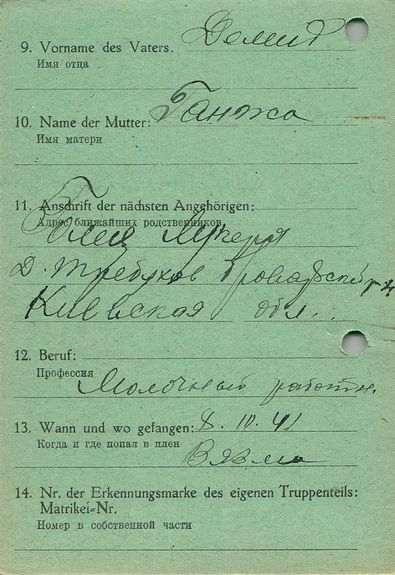 9. Vorname des Vaters. Демид
Имя отца
10. Name der Mutter: Ганжа
Имя матери
11. Anschrift der nächsten Angehörigen:
Адрес ближайших родственников
д. Требухов Броварской р-н
Киевская обл.
12. Beruf:
Профессия
Молочный работн.
13. Wann und wo gefangen: 8. 10. 41
Когда и где попал в плен
Вязма
14. Nr. der Erkennungsmarke des eigenen Truppenteils:
Matrikei-Nr.
Номер в собственной части